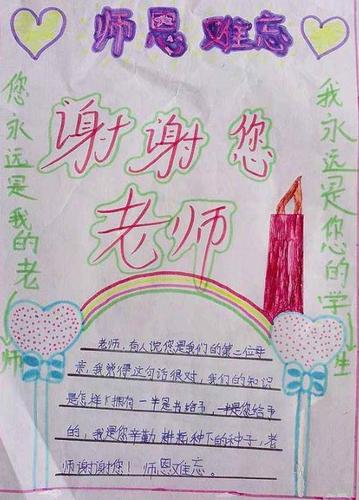 师恩难忘
您永远是我的老师
我永远是您的学生
谢谢您
老师
老师，有人说您是我们的第二位母
亲，我觉得这句话很对，我们的知识
是怎样 一半是书给予，一半是您给予
的，我是您辛勤耕耘种下的种子，老
师谢谢您！师恩难忘。